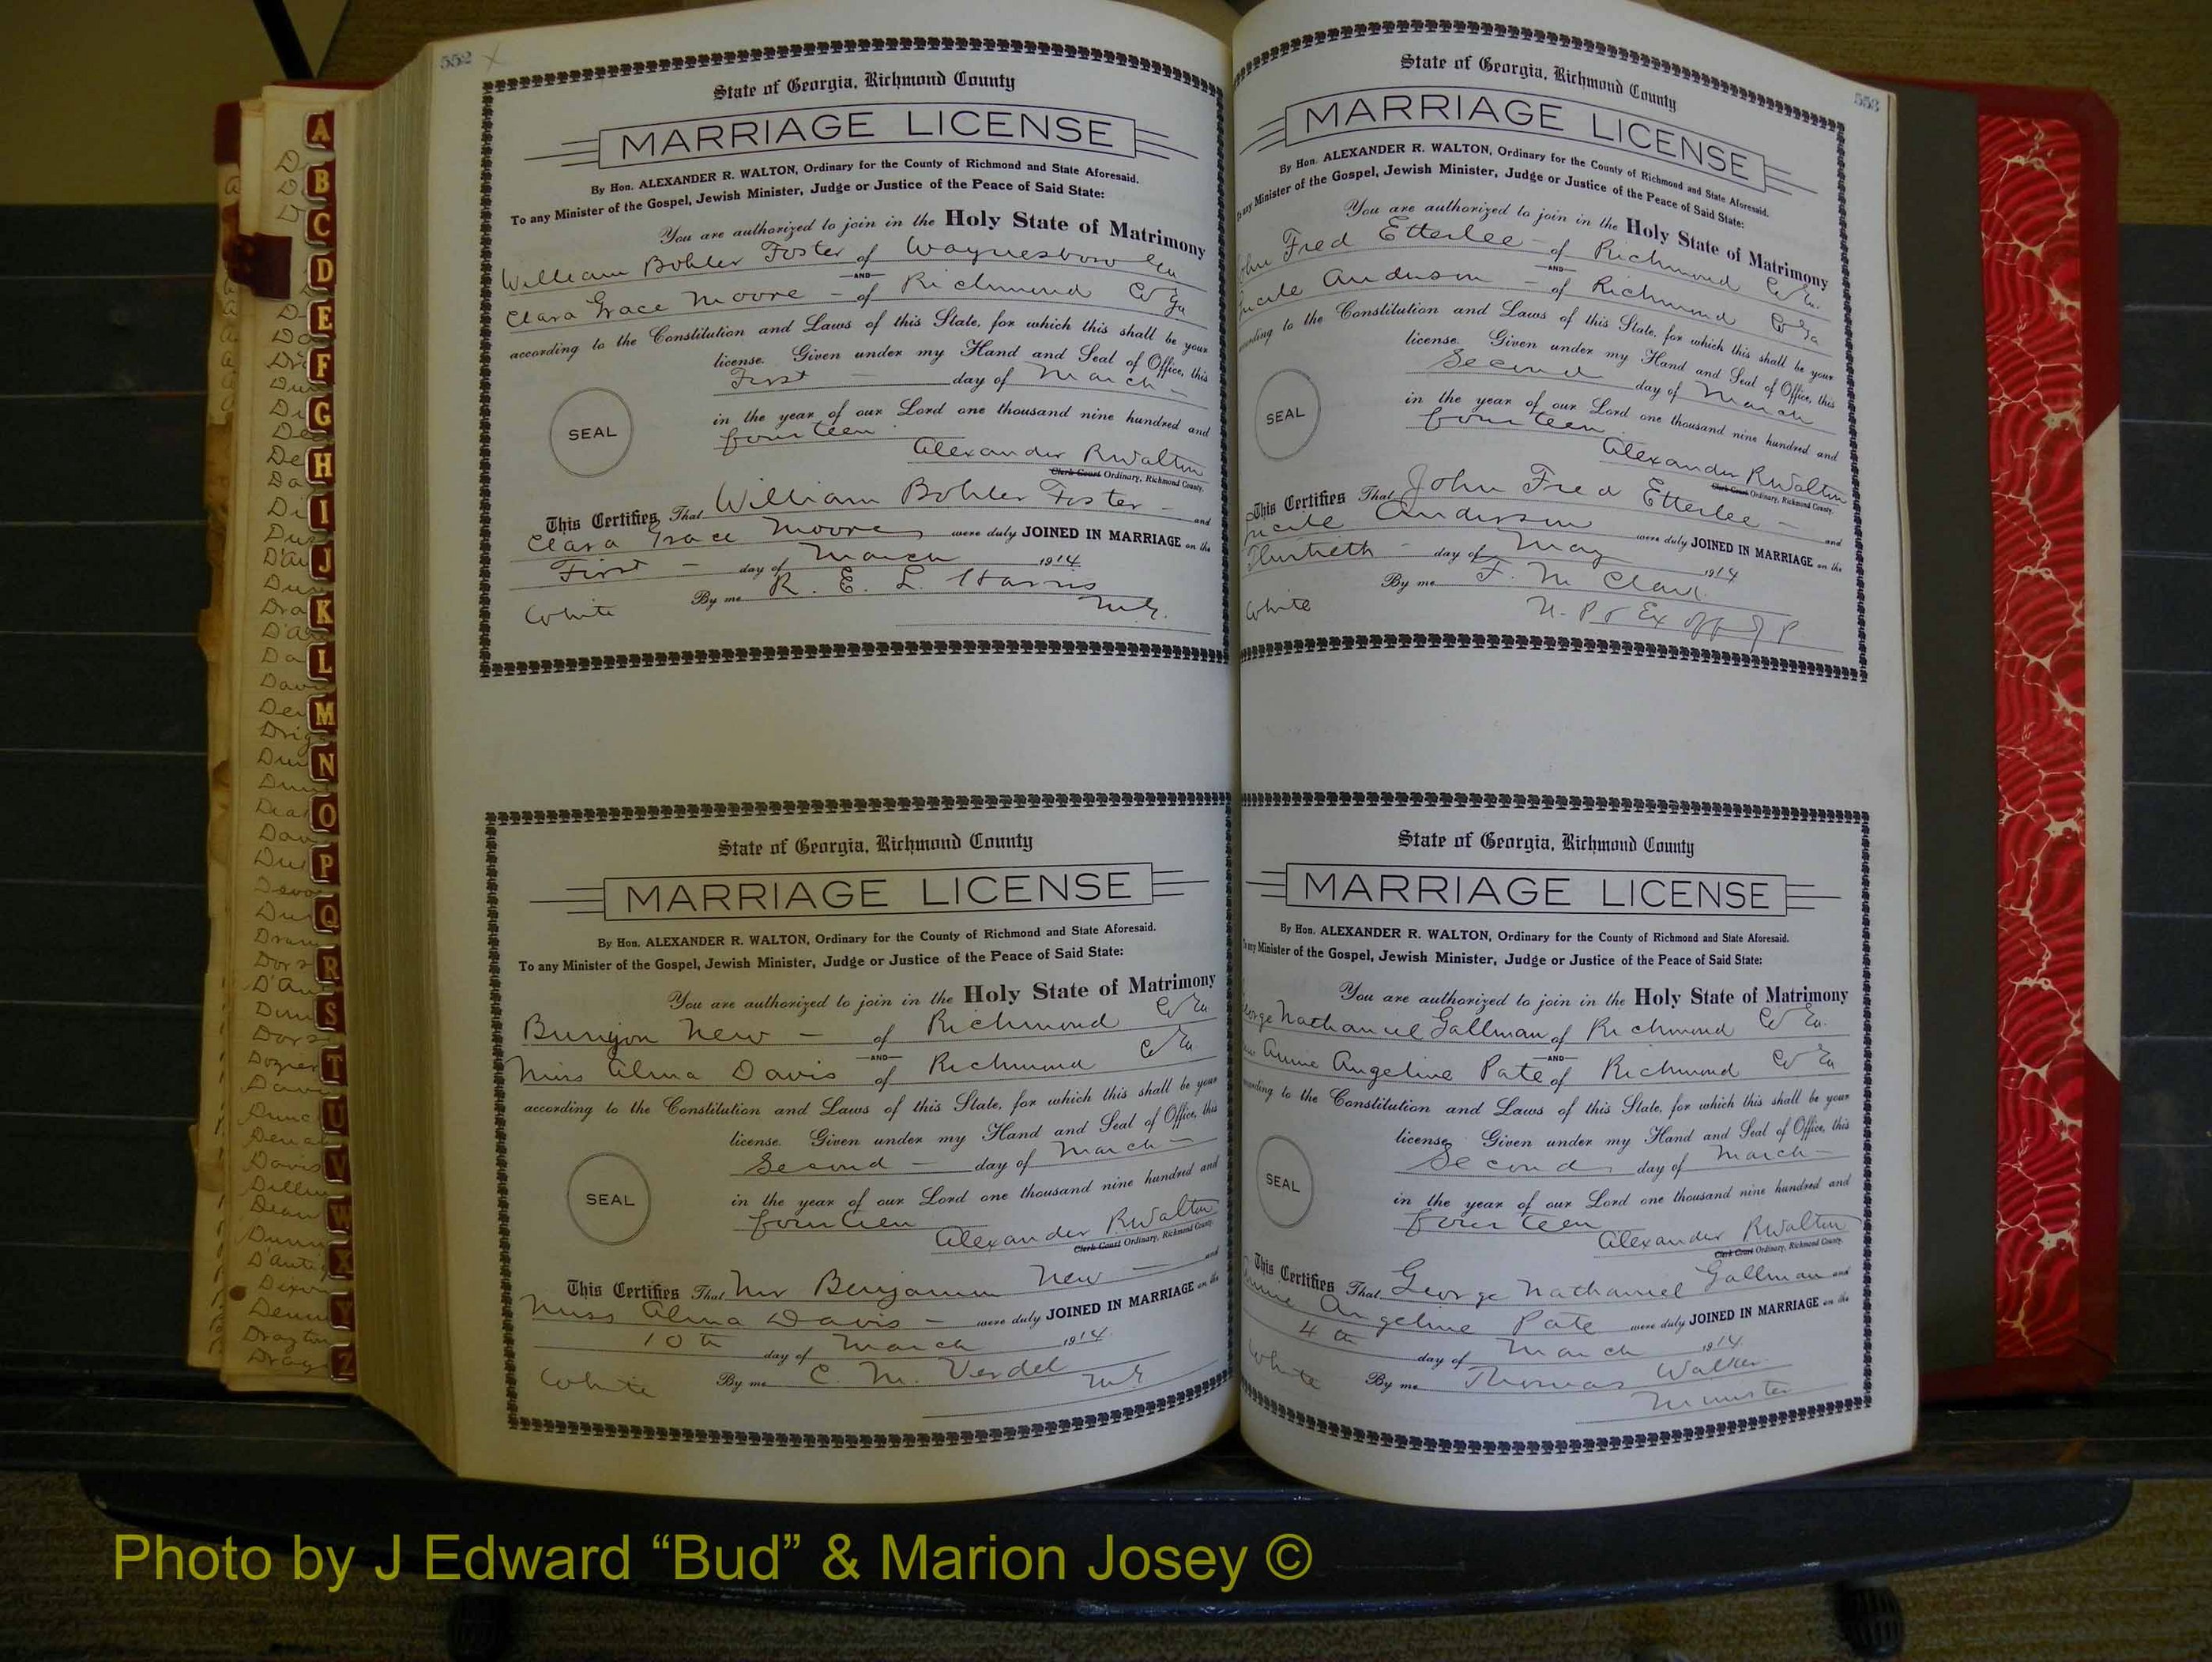 552 X
State of Georgia, Richmond County
MARRIAGE LICENSE
By Hon. ALEXANDER R. WALTON, Ordinary for the County of Richmond and State Aforesaid.
To any Minister of the Gospel, Jewish Minister, Judge or Justice of the Peace of Said State:
You are authorized to join in the Holy State of Matrimony
William Bohler Foster of Waynesboro Ga
AND
Clara Grace Moore - of Richmond Co Ga
according to the Constitution and Laws of this State, for which this shall be your
license. Given under my Hand and Seal of Office, this
First - day of March -
in the year of our Lord one thousand nine hundred and
fourteen
SEAL
Alexander R Walton
Clerk Court Ordinary, Richmond County.
This Certifies That William Bohler Foster - and
Clara Grace Moore were duly JOINED IN MARRIAGE on the
First - day of March 1914
By me R. E. L. Harris
White M.G.
State of Georgia, Richmond County
MARRIAGE LICENSE
By Hon. ALEXANDER R. WALTON, Ordinary for the County of Richmond and State Aforesaid.
To any Minister of the Gospel, Jewish Minister, Judge or Justice of the Peace of Said State:
You are authorized to join in the Holy State of Matrimony
Bunyon New - of Richmond Co Ga
AND
Miss Alma Davis of Richmond Co Ga
according to the Constitution and Laws of this State, for which this shall be your
license. Given under my Hand and Seal of Office, this
Second - day of March -
in the year of our Lord one thousand nine hundred and
fourteen
SEAL
Alexander R Walton
Clerk Court Ordinary, Richmond County.
This Certifies That Mr Benjamin New - and
Miss Alma Davis - were duly JOINED IN MARRIAGE on the
10th day of March 1914
By me C. M. Verdel
White M.G.
553
State of Georgia, Richmond County
MARRIAGE LICENSE
By Hon. ALEXANDER R. WALTON, Ordinary for the County of Richmond and State Aforesaid.
To any Minister of the Gospel, Jewish Minister, Judge or Justice of the Peace of Said State:
You are authorized to join in the Holy State of Matrimony
John Fred Etterlee - of Richmond Co Ga.
AND
Lucile Anderson - of Richmond Co Ga
according to the Constitution and Laws of this State, for which this shall be your
license. Given under my Hand and Seal of Office, this
Second day of March
in the year of our Lord one thousand nine hundred and
fourteen
SEAL
Alexander R Walton
Clerk Court Ordinary, Richmond County.
This Certifies That John Fred Etterlee - and
Lucile Anderson were duly JOINED IN MARRIAGE on the
Thirtieth - day of May 1914
By me F. M. Clark
White N. P & Ex Off J P
State of Georgia, Richmond County
MARRIAGE LICENSE
By Hon. ALEXANDER R. WALTON, Ordinary for the County of Richmond and State Aforesaid.
To any Minister of the Gospel, Jewish Minister, Judge or Justice of the Peace of Said State:
You are authorized to join in the Holy State of Matrimony
George Nathaniel Gallman of Richmond Co Ga.
AND
Annie Angeline Pate of Richmond Co Ga
according to the Constitution and Laws of this State, for which this shall be your
license. Given under my Hand and Seal of Office, this
Second day of March -
in the year of our Lord one thousand nine hundred and
fourteen
SEAL
Alexander R Walton
Clerk Court Ordinary, Richmond County.
This Certifies That George Nathaniel Gallman and
Annie Angeline Pate were duly JOINED IN MARRIAGE on the
4th day of March 1914
By me Thomas Walker
White Minister
A
B
C
D
E
F
G
H
I
J
K
L
M
N
O
P
Q
R
S
T
U
V
W
X
Y
Z
Photo by J Edward “Bud” & Marion Josey ©